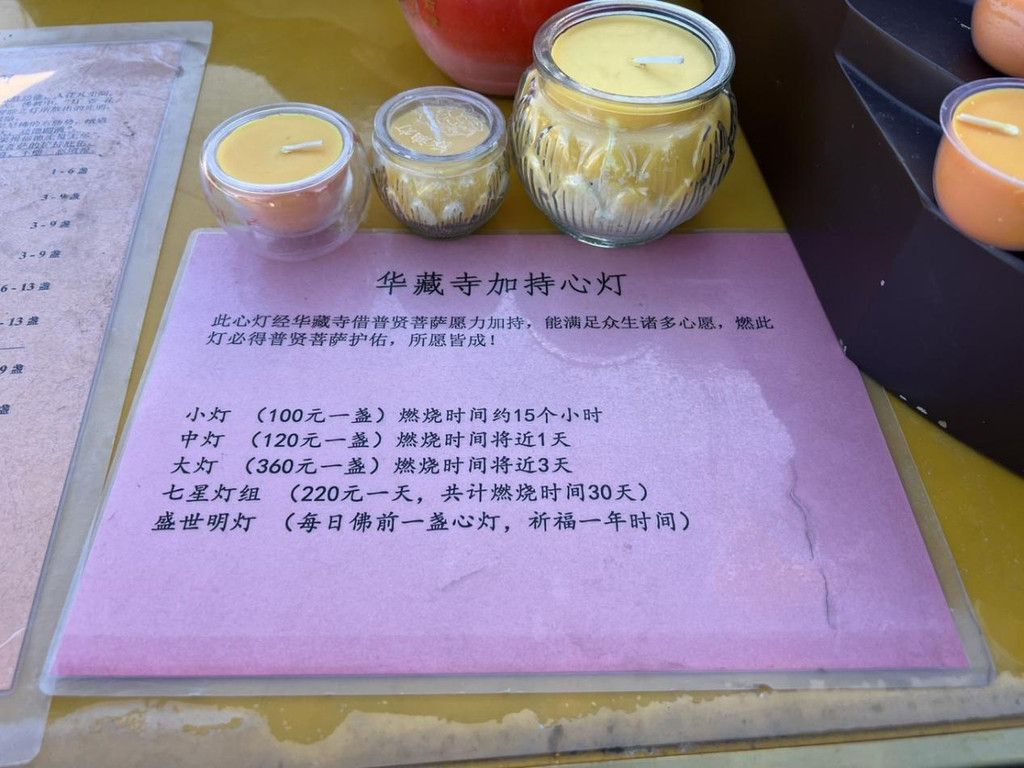 1 - 6 盏
3 - 9 盏
3 - 9 盏
3 - 9 盏
6 - 13 盏
- 13 盏
9 盏
盏
华藏寺加持心灯
此心灯经华藏寺借普贤菩萨愿力加持，能满足众生诸多心愿，燃此
灯必得普贤菩萨护佑，所愿皆成！
小灯 （100元一盏）燃烧时间约15个小时
中灯 （120元一盏）燃烧时间将近1天
大灯 （360元一盏）燃烧时间将近3天
七星灯组 （220元一天，共计燃烧时间30天）
盛世明灯 （每日佛前一盏心灯，祈福一年时间）